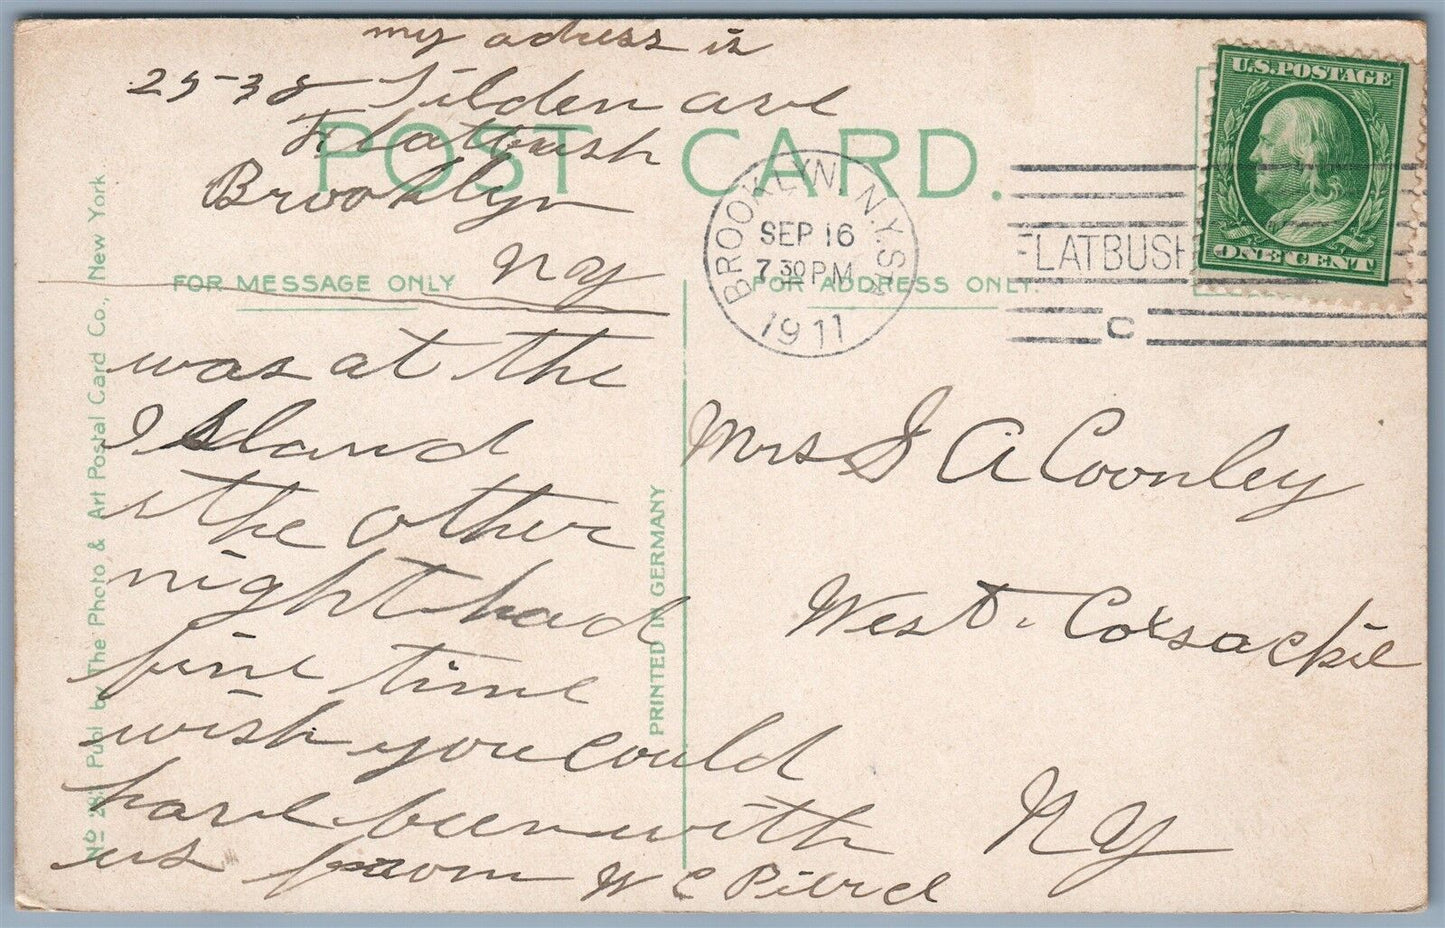 my adress is
25-38 Tilden ave
Flatbush
Brooklyn
NY
POST CARD.
FOR MESSAGE ONLY
was at the
Island
the other
night had
fine time
wish you could
have been with
us from W C Pierce
Nº Publ by The Photo & Art Postal Card Co., New York
PRINTED IN GERMANY
BROOKLYN, N.Y. STA
SEP 16
7 30 PM
1911
FLATBUSH
C
U.S. POSTAGE
ONE CENT
FOR ADDRESS ONLY.
Mrs A Coonley
West. Coxsackie
NY